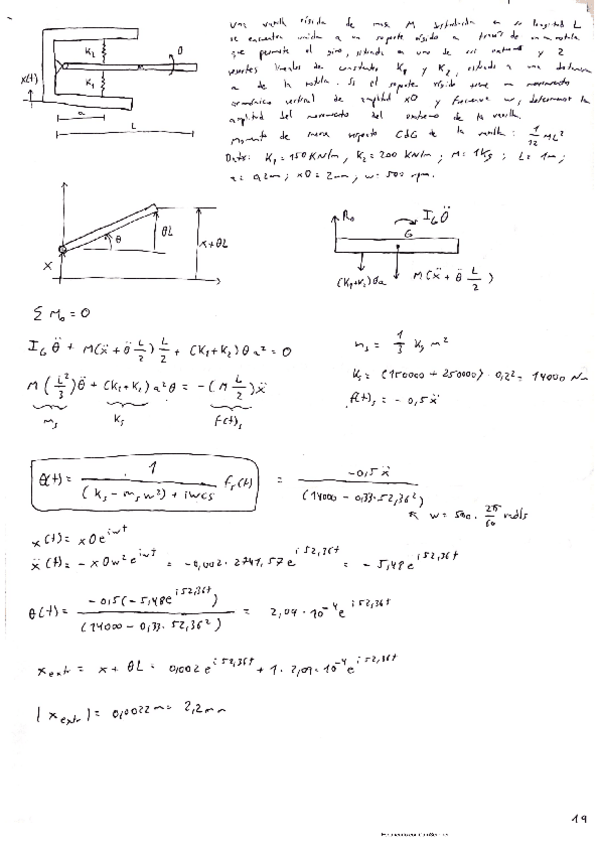 Una varilla rígida de masa M distribuida en su longitud L
se encuentra unida a un soporte rígido a través de una rótula
que permite el giro, situada en uno de sus extremos y 2
resortes lineales de constantes K1 y K2, situados a una distancia
a de la rótula. Si el soporte rígido tiene un movimiento
armónico vertical de amplitud x0 y frecuencia w, determinar la
amplitud del movimiento del extremo de la varilla.
Momento de masa respecto CdG de la varilla: 1/12 ML²
Datos: K1 = 150 KN/m, K2 = 200 KN/m; M = 1Kg; L = 1m;
a = 0,2m; x0 = 2mm; w = 500 rpm.
K2
θ
x(t)
K1
a
L
θ
θL
x+θL
x
R0
I_G θ̈
G
(K1+K2)θa
M(ẍ + θ̈ L/2)
Σ M0 = 0
I_G θ̈ + M(ẍ + θ̈ L/2) L/2 + (K1+K2) θ a² = 0
M(L²/3) θ̈ + (K1+K2) a² θ = -(M L/2) ẍ
ms
Ks
f(t)s
ms = 1/3 Kg m²
Ks = (150000 + 250000) · 0,2² = 14000 Nm
f(t)s = -0,5ẍ
θ(t) = 1 / ((Ks - ms w²) + iwcs) fs(t) = -0,5ẍ / (14000 - 0,33·52,36²)
w = 500 · 2π/60 rad/s
x(t) = x0 e^iwt
ẍ(t) = -x0w² e^iwt = -0,002 · 2741,57 e^i52,36t = -5,48 e^i52,36t
θ(t) = -0,5(-5,48e^i52,36t) / (14000 - 0,33·52,36²) = 2,09 · 10^-4 e^i52,36t
xextr = x + θL = 0,002 e^i52,36t + 1 · 2,09·10^-4 e^i52,36t
|xextr| = 0,0022m = 2,2mm
19